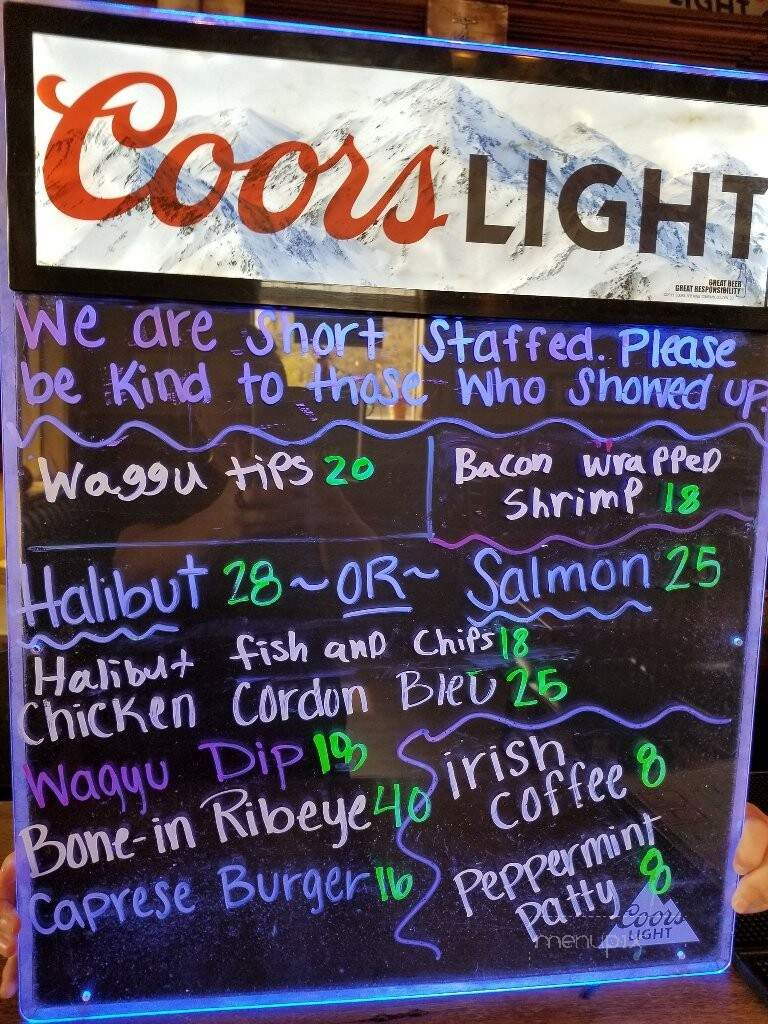 LIGHT
Coors LIGHT
GREAT BEER
GREAT RESPONSIBILITY
We are Short Staffed. Please
be Kind to those Who Showed up.
Waggu tips 20
Bacon wrapped
Shrimp 18
Halibut 28 ~OR~ Salmon 25
Halibut fish and Chips 18
Chicken Cordon Bleu 25
Wagyu Dip
Bone-in Ribeye 40
Caprese Burger 16
Irish
Coffee 8
Peppermint
Patty 8
Coors
LIGHT
menupix